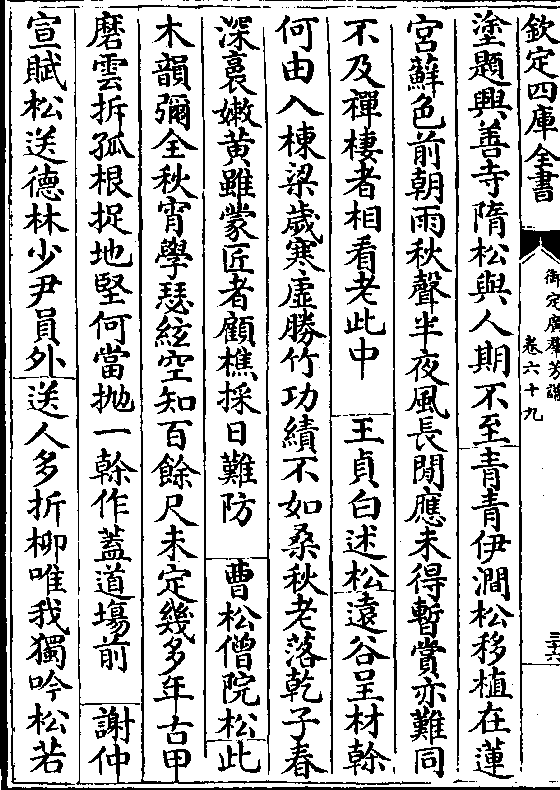 欽定四庫全書
御定廣羣芳譜
卷六十九
三六
塗題興善寺隋松與人期不至青青伊澗松移植在蓮
宮蘚色前朝雨秋聲半夜風長閒應未得暫賞亦難同
不及禪棲者相看老此中 王貞白述松遠谷呈材榦
何由入棟梁歲寒虛勝竹功績不如桑秋老落乾子春
深裛嫩黄雖蒙匠者顧樵採日難防 曹松僧院松此
木韻彌全秋宵學瑟絃空知百餘尺未定幾多年古甲
磨雲拆孤根捉地堅何當抛一榦作蓋道場前 謝仲
宣賦松送德林少尹員外送人多折柳唯我獨吟松若